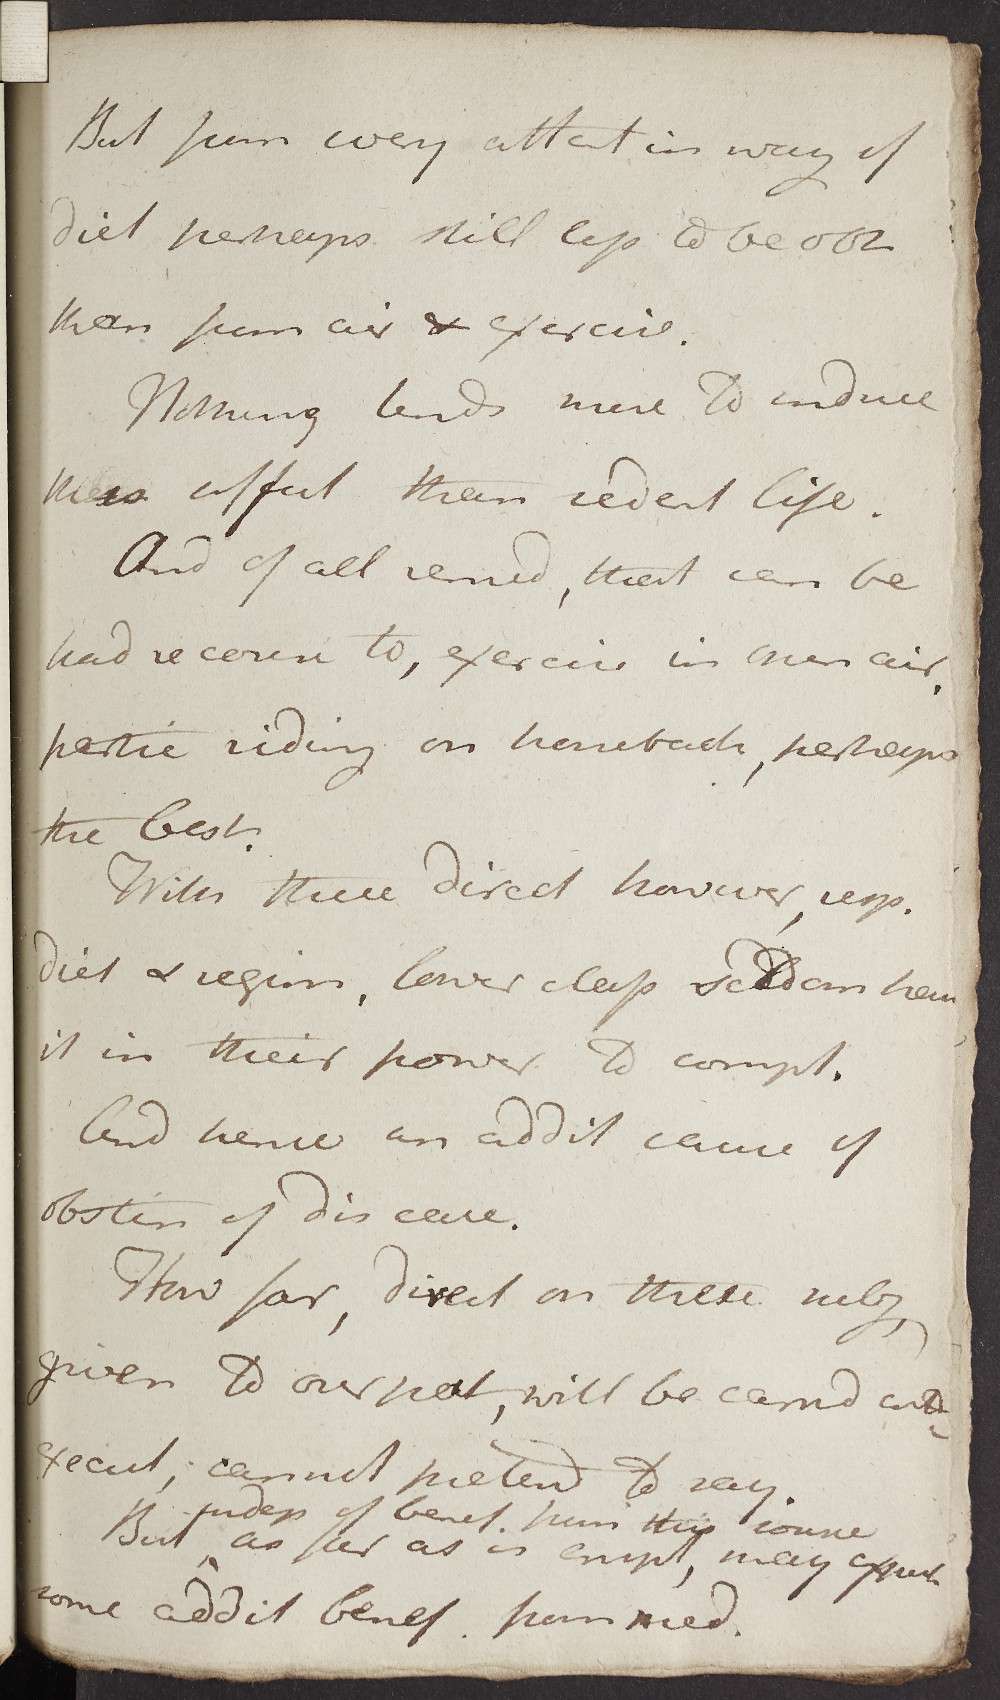 But from every attent in way of
diet perhaps still less to be obt
than from air & exercise.
Nothing tends more to induce
these affect than sedent life.
And of all remed, that can be
had recourse to, exercise in open air,
partic riding on horseback, perhaps
the best.
With these direct however, resp.
diet & regim, lower class seldom have
it in their power to compl.
And hence an addit cause of
obstin of disease.
How far, direct on these subj,
given to our pat, will be carried into
execut, cannot pretend to say.
indep of benef. from this source
But, as far as is empl, may expect
some addit benef. from med.